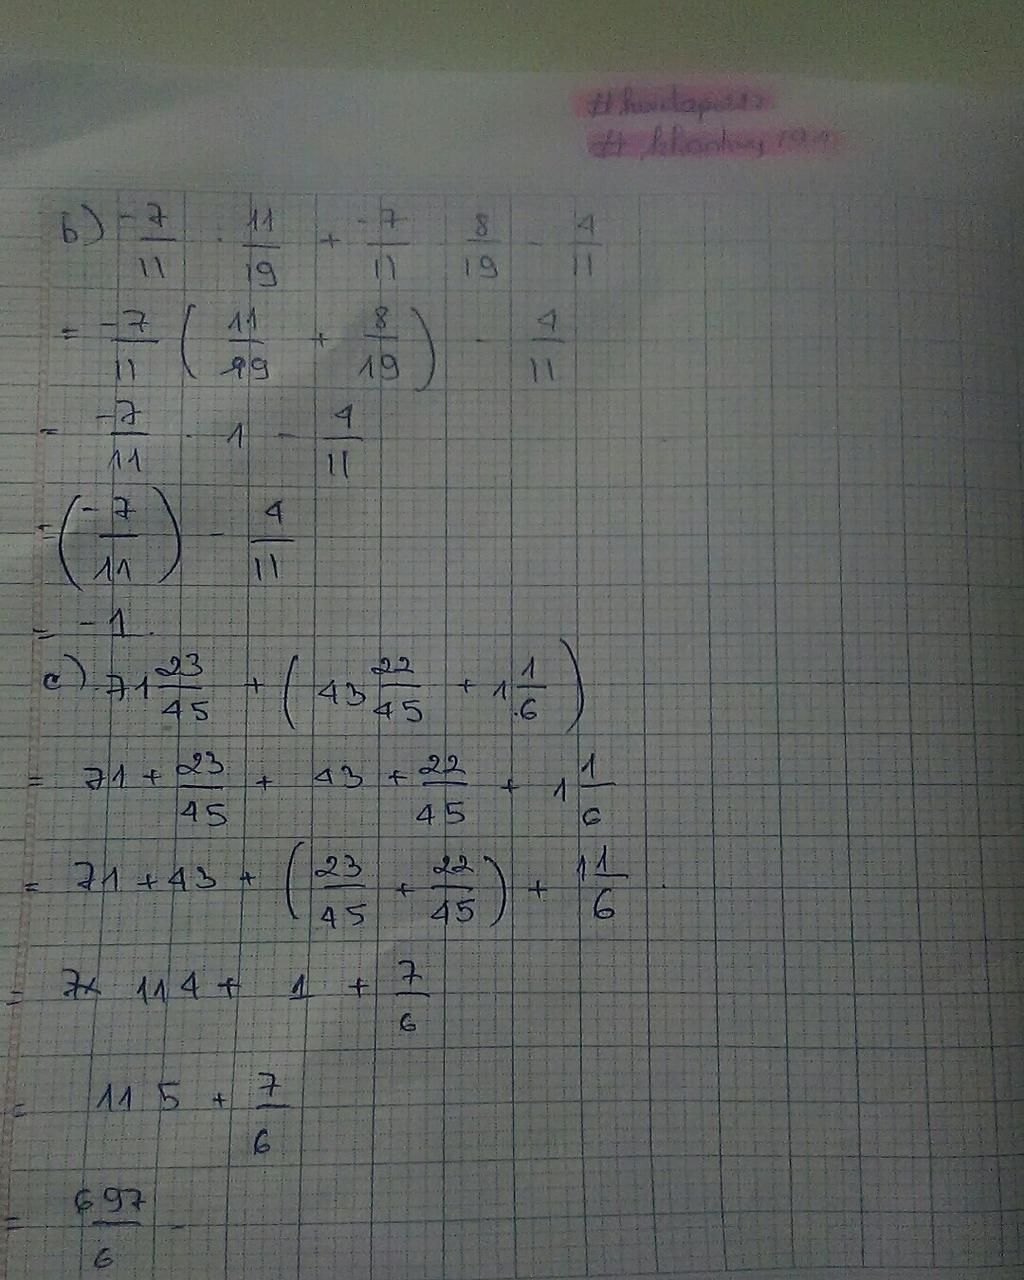 b) -7/11 · 11/19 + -7/11 · 8/19 - 4/11
= -7/11 ( 11/19 + 8/19 ) - 4/11
= -7/11 · 1 - 4/11
= ( -7/11 ) - 4/11
= -1
c) 71 23/45 + ( 43 22/45 + 1 1/6 )
= 71 + 23/45 + 43 + 22/45 + 1 1/6
= 71 + 43 + ( 23/45 + 22/45 ) + 1 1/6
= 114 + 1 + 7/6
= 115 + 7/6
= 697/6